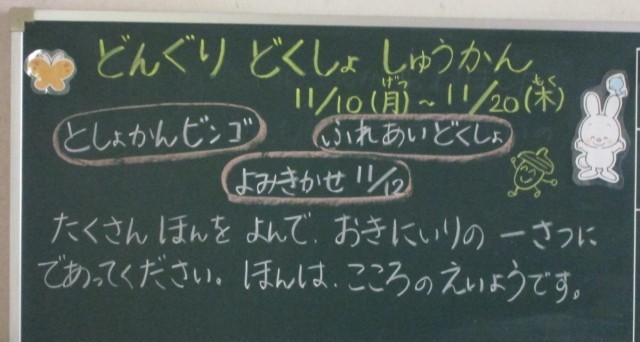 どんぐり どくしょ しゅうかん
11/10(月)～11/20(木)
げつ もく
としょかんビンゴ ふれあいどくしょ
よみきかせ 11/12
たくさん ほんを よんで、おきにいりの 一さつに
であってください。ほんは、こころの えいようです。